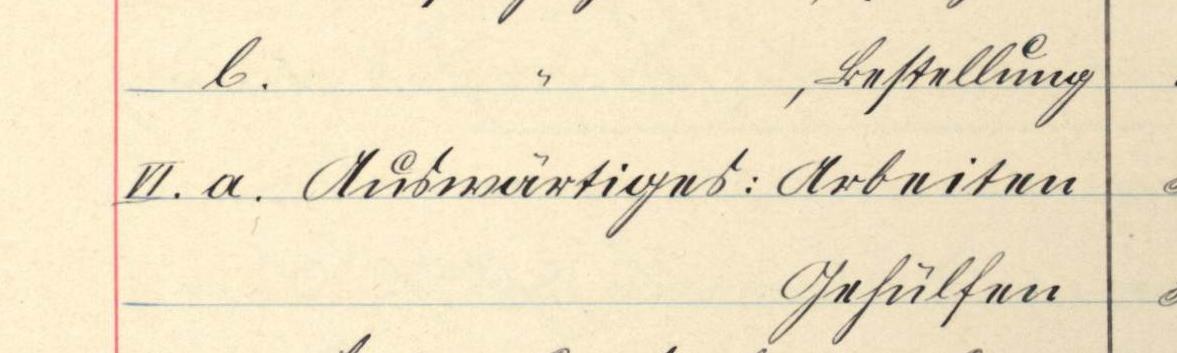 b. " , Bestellung
VI. a. Auswärtiges: Arbeiten
Gehülfen